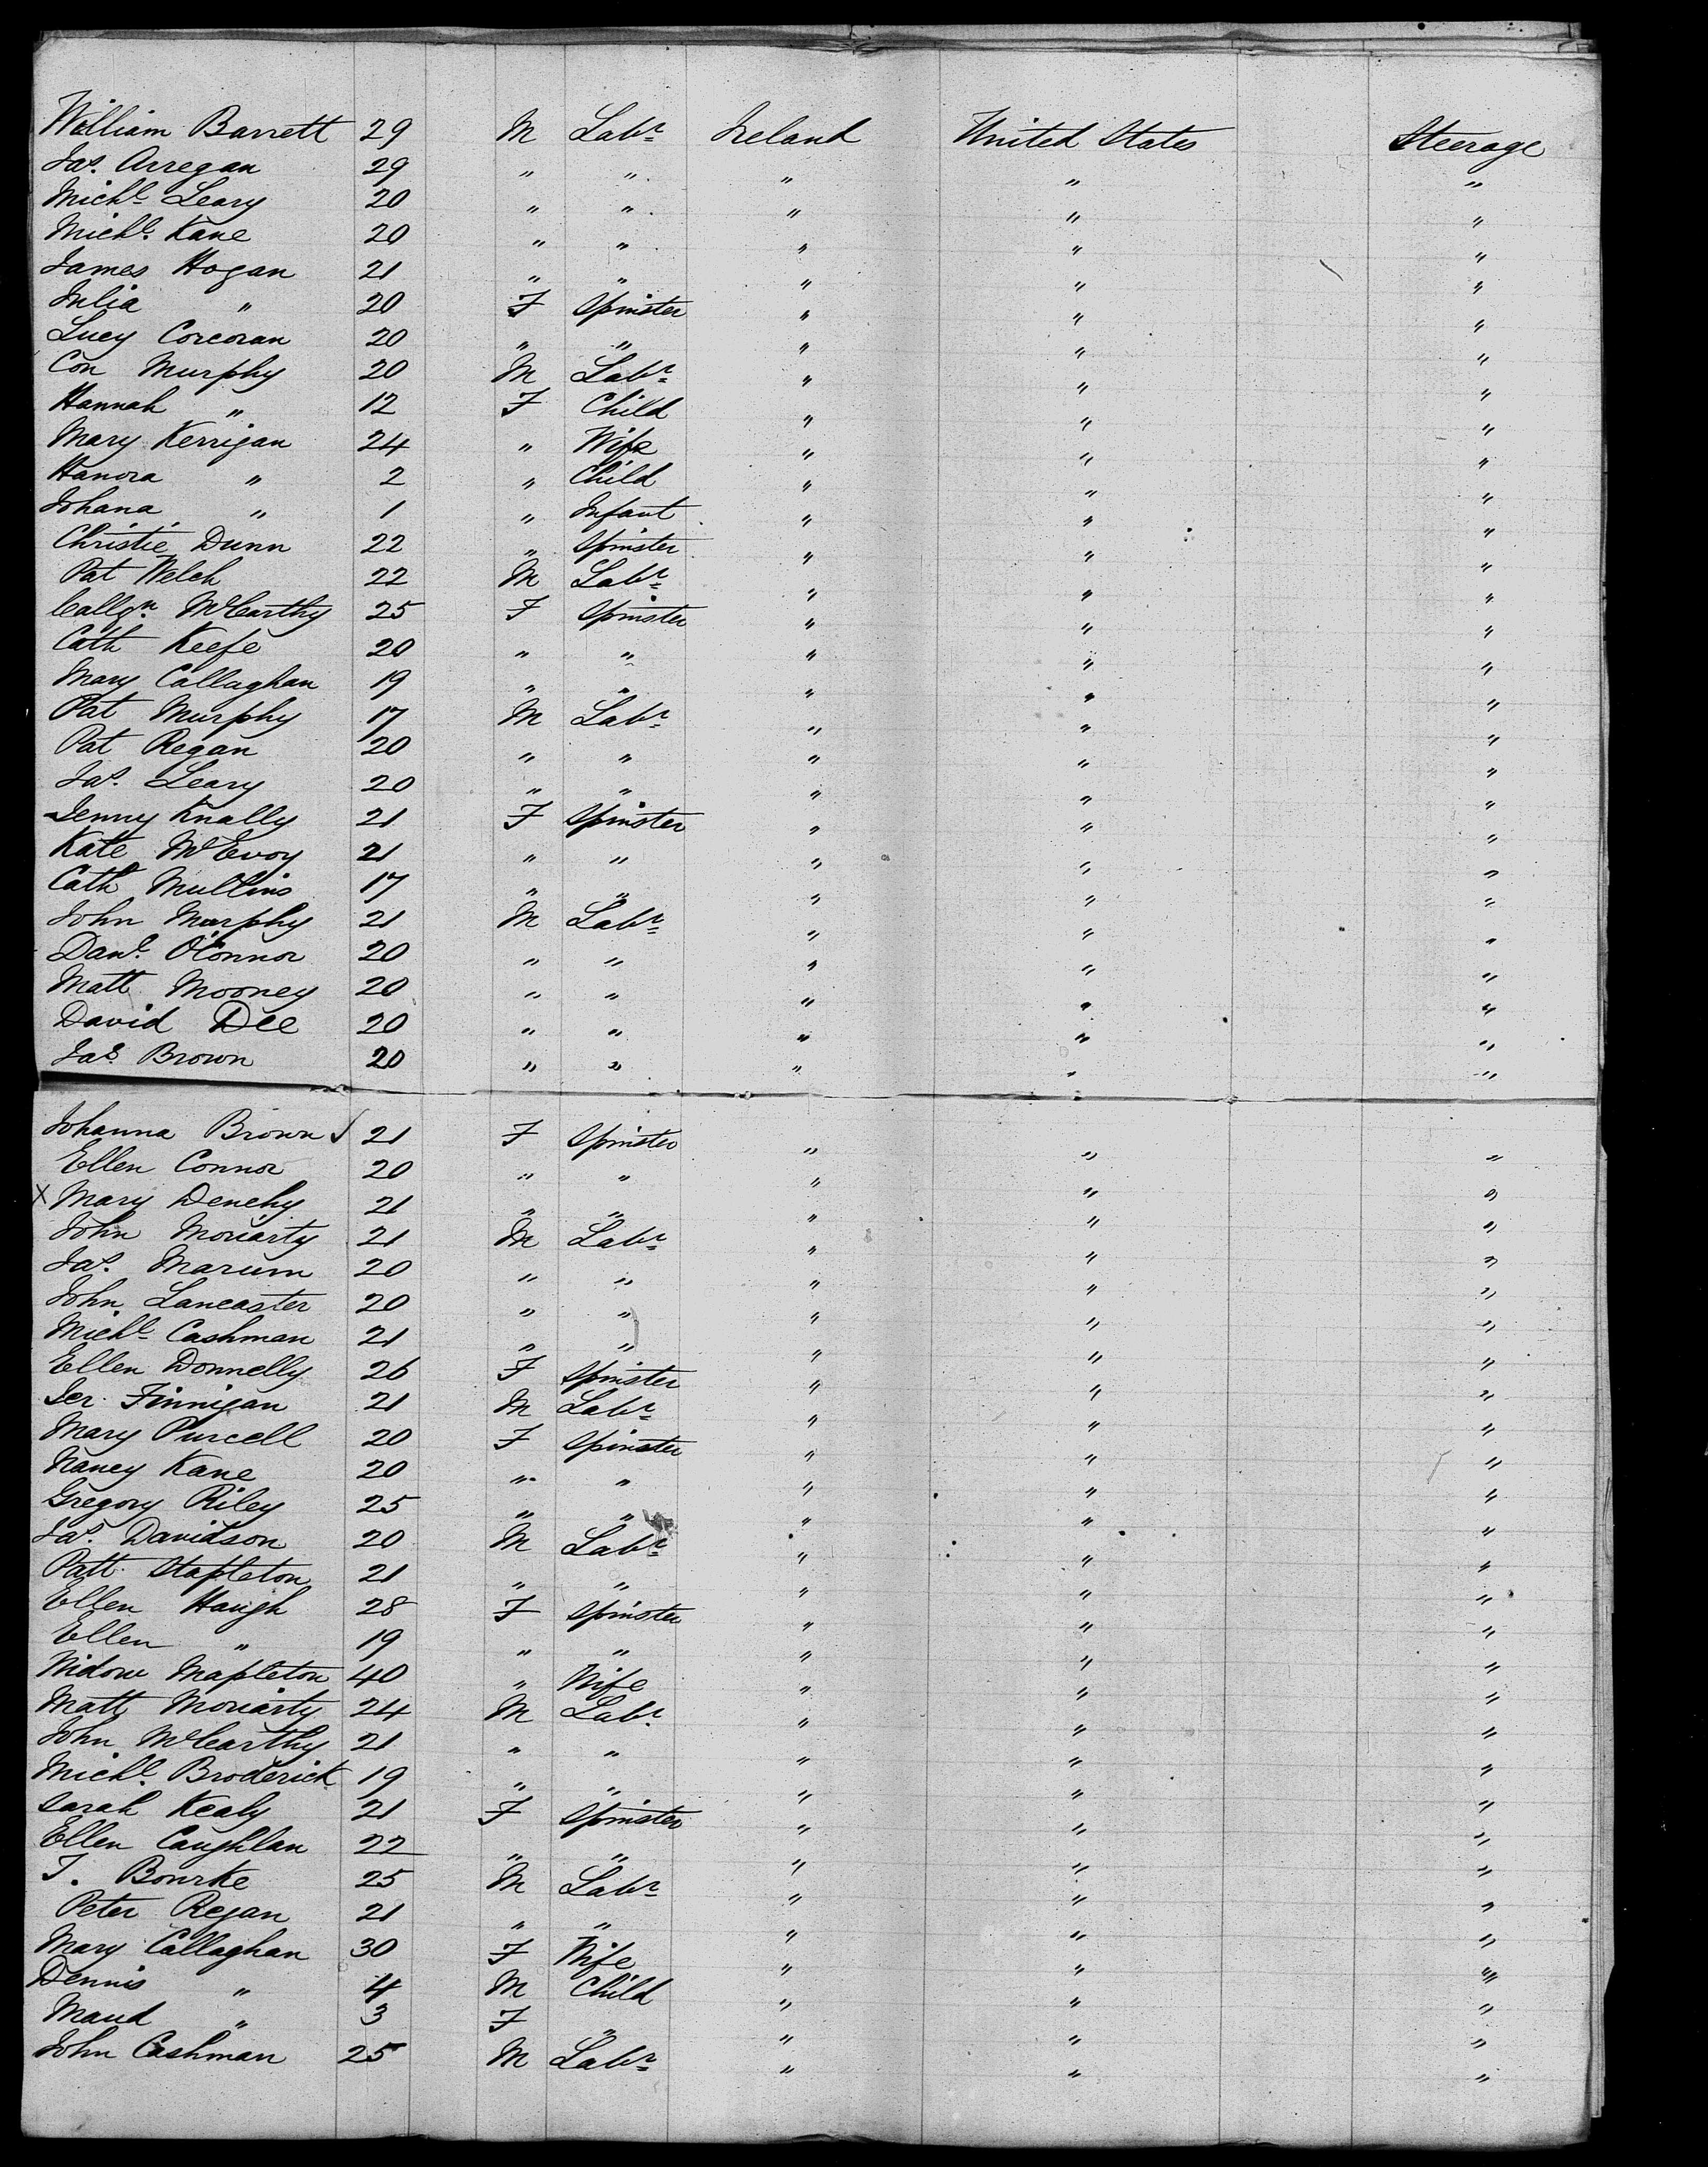 William Barrett 29 M Labr Ireland United States Steerage
Jas. Arregan 29 " " " " "
Michl. Leary 20 " " " " "
Michl. Kane 20 " " " " "
James Hogan 21 " " " " "
Julia " 20 F Spinster " " "
Lucy Corcoran 20 " " " " "
Con Murphy 20 M Labr " " "
Hannah " 12 F Child " " "
Mary Kerrigan 24 " Wife " " "
Hanora " 2 " Child " " "
Johana " 1 " Infant " " "
Christie Dunn 22 " Spinster " " "
Pat Welch 22 M Labr " " "
Callgn. McCarthy 25 F Spinster " " "
Cath Keefe 20 " " " " "
Mary Callaghan 19 " " " " "
Pat Murphy 17 M Labr " " "
Pat Regan 20 " " " " "
Jas. Leary 20 " " " " "
Jenny Knally 21 F Spinster " " "
Kate McEvoy 21 " " " " "
Cath Mullins 17 " " " " "
John Murphy 21 M Labr " " "
Danl. O'Connor 20 " " " " "
Matt Mooney 20 " " " " "
David Dee 20 " " " " "
Jas. Brown 20 " " " " "
Johanna Brown 21 F Spinster " " "
Ellen Connor 20 " " " " "
X Mary Denehy 21 " " " " "
John Moriarty 21 M Labr " " "
Jas. Marum 20 " " " " "
John Lancaster 20 " " " " "
Michl. Cashman 21 " " " " "
Ellen Donnelly 26 F Spinster " " "
Jer. Finnigan 21 M Labr " " "
Mary Purcell 20 F Spinster " " "
Nancy Kane 20 " " " " "
Gregory Riley 25 " " " " "
Jas. Davidson 20 M Labr " " "
Patt. Stapleton 21 " " " " "
Ellen Haugh 28 F Spinster " " "
Ellen " 19 " " " " "
Widow Mapleton 40 " Wife " " "
Matt Moriarty 24 M Labr. " " "
John McCarthy 21 " " " " "
Michl. Broderick 19 " " " " "
Sarah Kealy 21 F Spinster " " "
Ellen Caughlan 22 " " " " "
T. Bourke 25 M Labr " " "
Peter Regan 21 " " " " "
Mary Callaghan 30 F Wife " " "
Dennis " 4 M Child " " "
Maud " 3 F " " " "
John Cashman 25 M Labr " " "